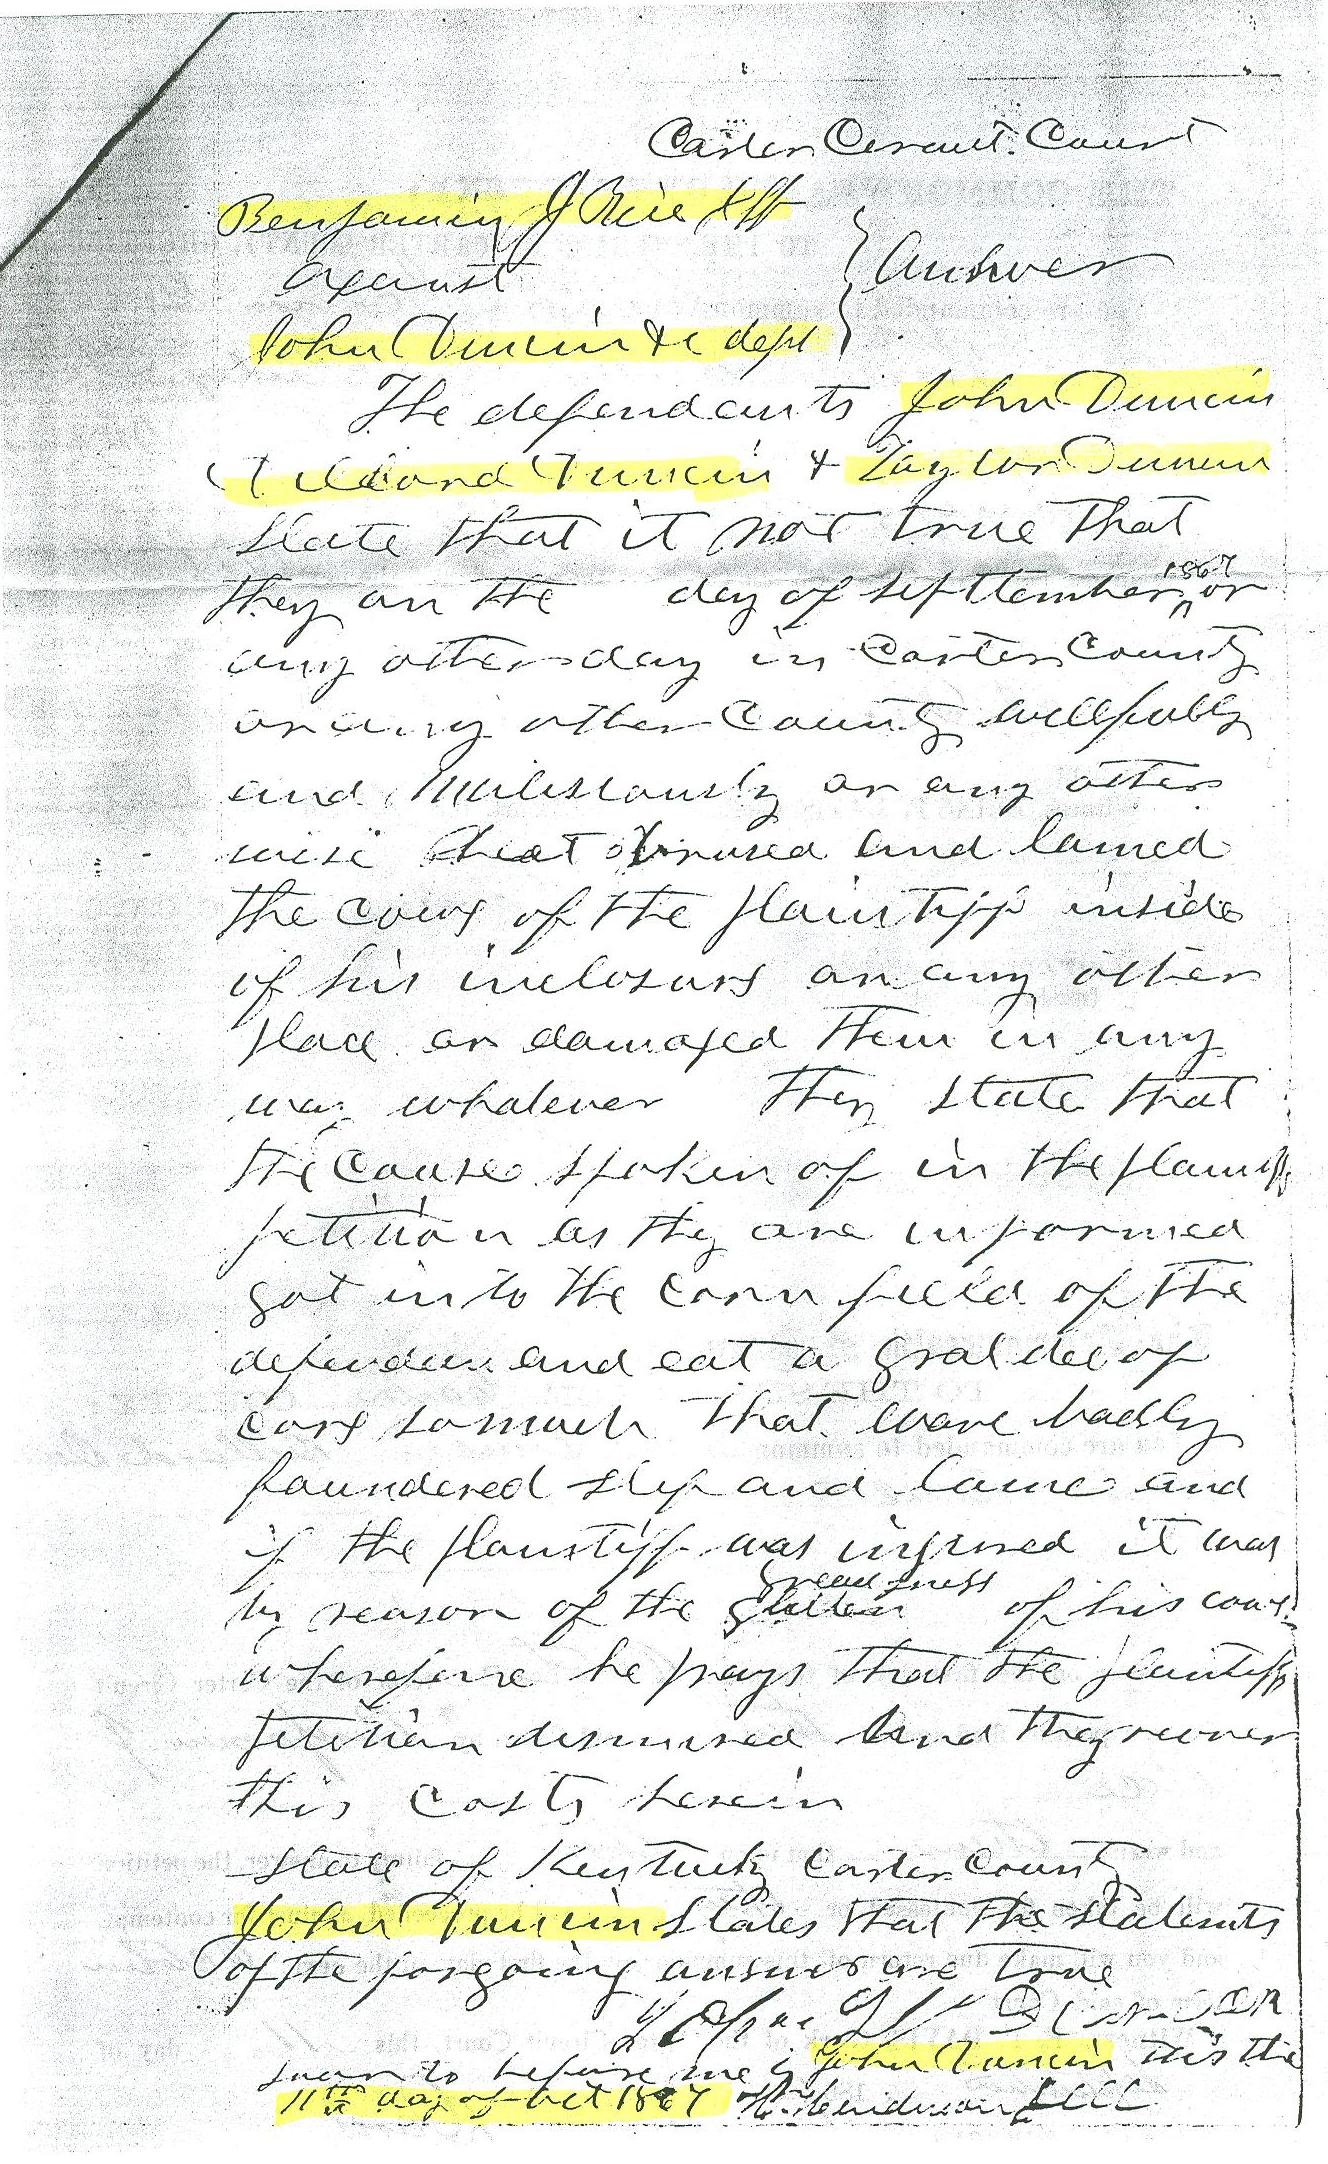 Carter Cercuit. Court
Benjamin J Rice plff
against } Answer
John Duncin &c deft
The defendants John Duncin
Willard Duncin & Taylor Duncin
state that it not true that
they on the day of September 1867 or
any other day in Carter County
or any other County willfully
and Milisiously or any other
wise beat brused and lamed
the cows of the plaintiff inside
of his inclosurs or any other
place or damaged them in any
way whatever They state that
the cause spoken of in the plaintiff
petition as they are informed
got into the corn field of the
defenden and eat a grat dee of
corn so much that ware badly
foundered stif and lame and
if the plaintiff was injured it was
by reason of the greadiness of his cows
wherefore he prays that the plaintiff
petition dismissed and they recover
this costs herein
State of Kentucky Carter County
John Duncin states that the statemts
of the forgoing answer are true
John Duncan
sworn to before me by John Duncin this the
11th day of Oct 1867